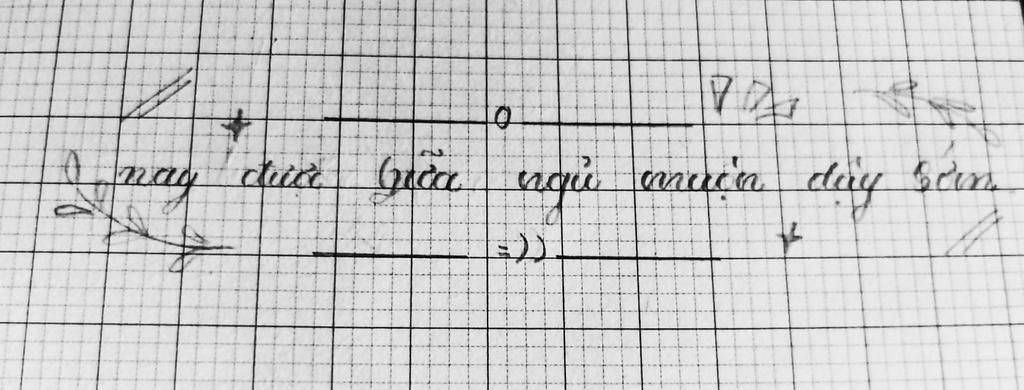 nay được bữa ngủ muộn dậy sớm
=))